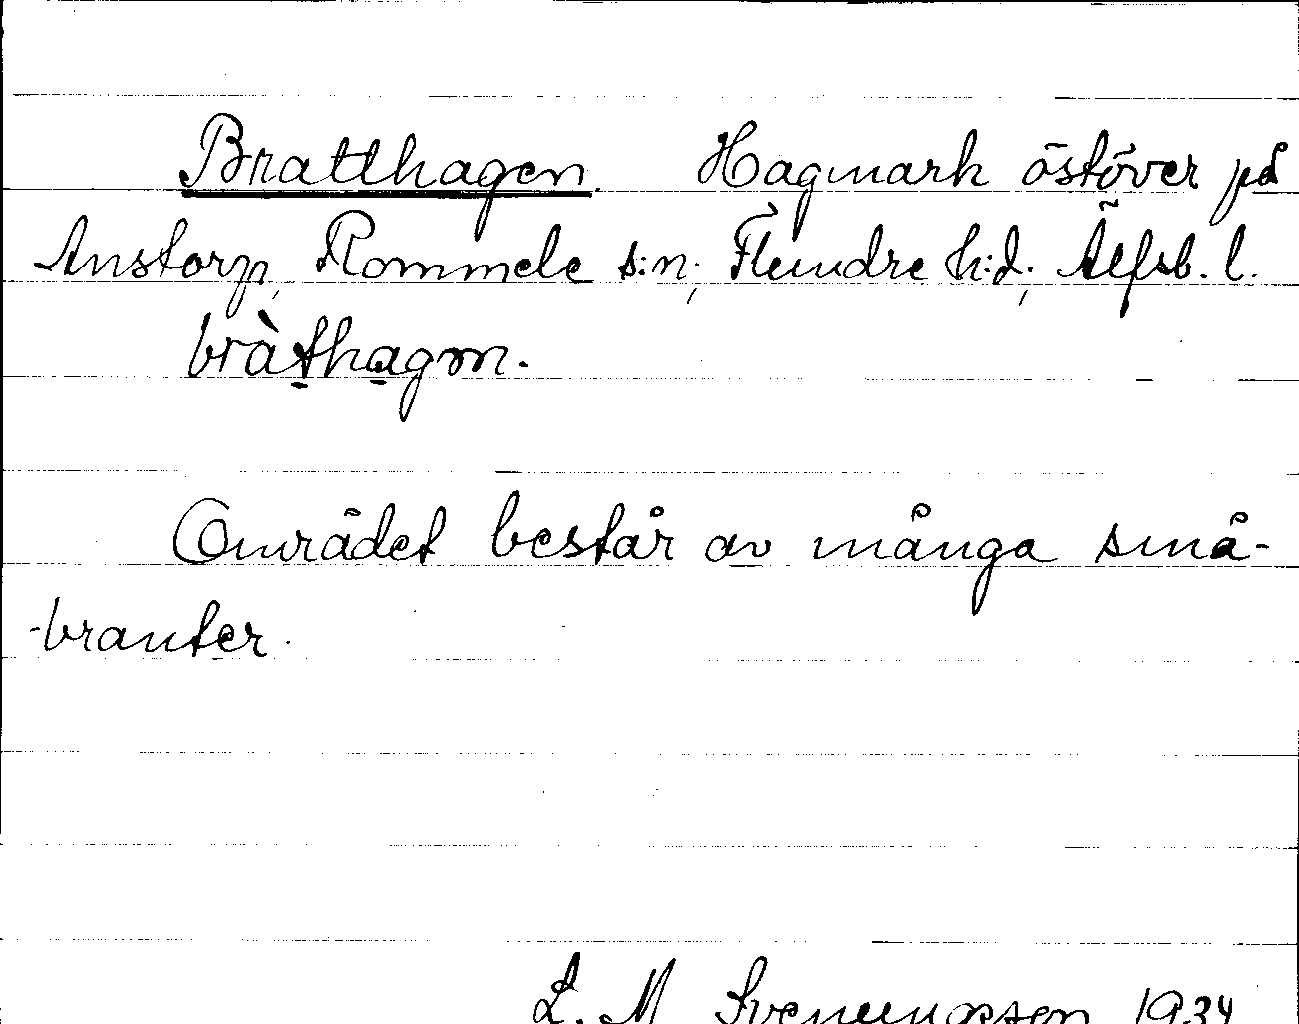 Bratthagen. Hagmark östöver på
Anstorp, Rommele s:n, Flundre h:d, Älfsb. l.
bràthagon.
Området består av många små-
-branter.
L. M Svenungsson 1934